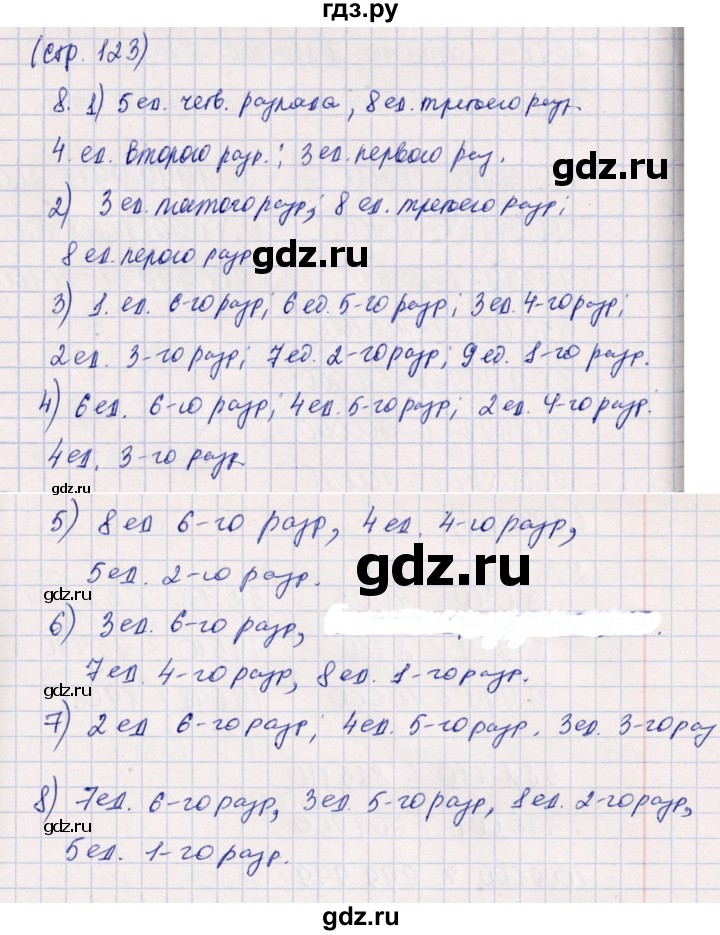 гдз.ру
(стр. 123)
8. 1) 5 ед. четв. разряда, 8 ед. третьего разр.
4. ед. второго разр.; 3 ед. первого раз.
gdz.ru
2) 3 ед. пятого разр; 8 ед. третьего разр;
8 ед. перого разр
gdz.ru
3) 1. ед. 6-го разр; 6 ед. 5-го разр; 3 ед. 4-го разр;
2 ед. 3-го разр; 7 ед. 2-го разр; 9 ед. 1-го разр.
4) 6 ед. 6-го разр; 4 ед. 5-го разр; 2 ед. 4-го разр.
4 ед. 3-го разр
gdz.ru
5) 8 ед 6-го разр, 4 ед. 4-го разр,
gdz.ru
5 ед. 2-го разр.
gdz.ru
6) 3 ед. 6-го разр,
7 ед. 4-го разр, 8 ед. 1-го разр.
gdz.ru
7) 2 ед 6-го разр; 4 ед. 5-го разр. 3 ед. 3-го раз
8) 7 ед. 6-го разр, 3 ед. 5-го разр, 1 ед. 2-го разр,
gdz.ru
5 ед. 1-го разр.
gdz.ru